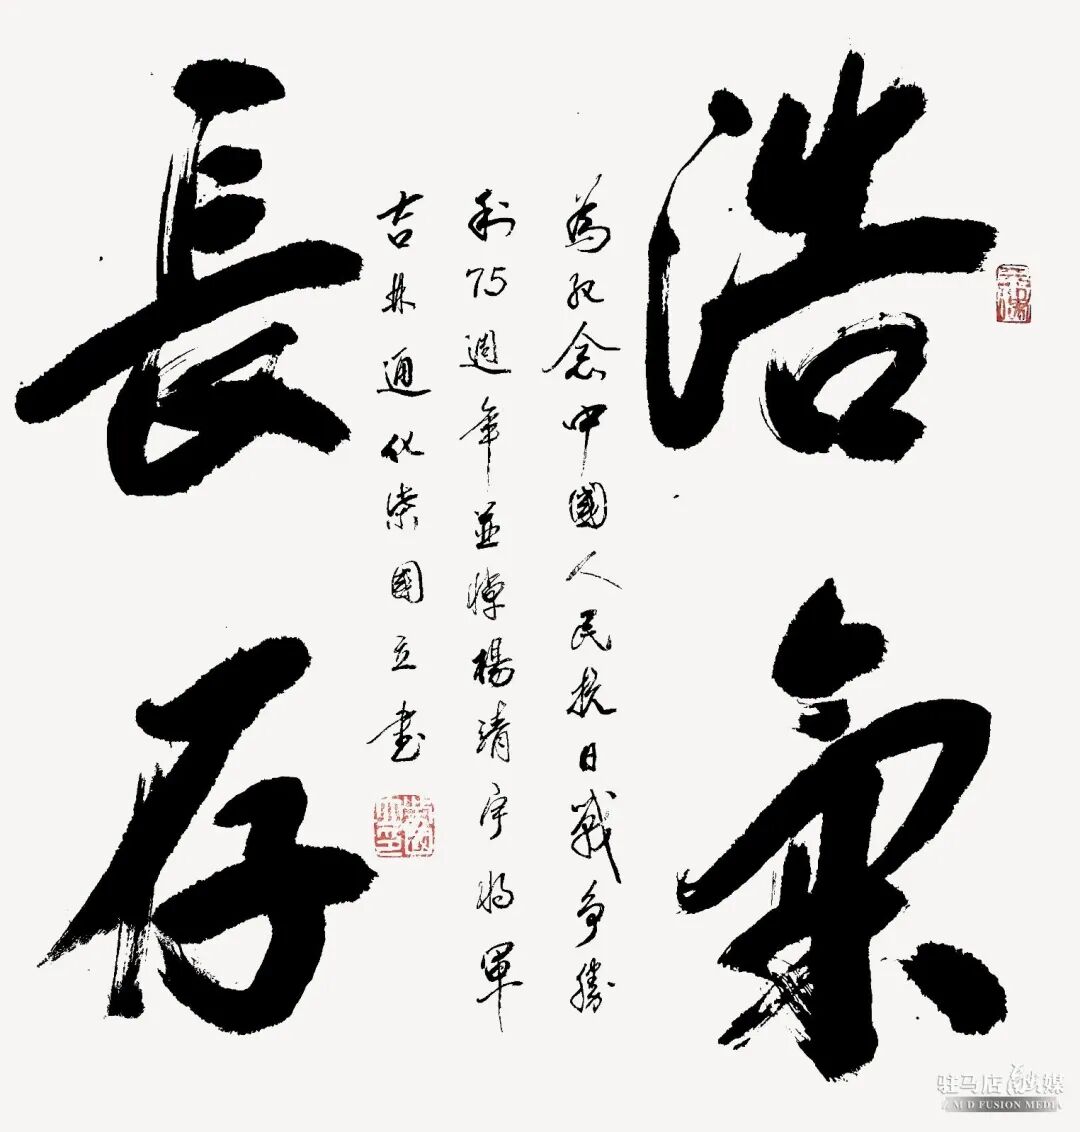 浩氣
長存
為紀念中國人民抗日戰爭勝
利75週年並悼楊靖宇將軍
吉林通化柴國立書
驻马店融媒
ZMD FUSION MEDIA